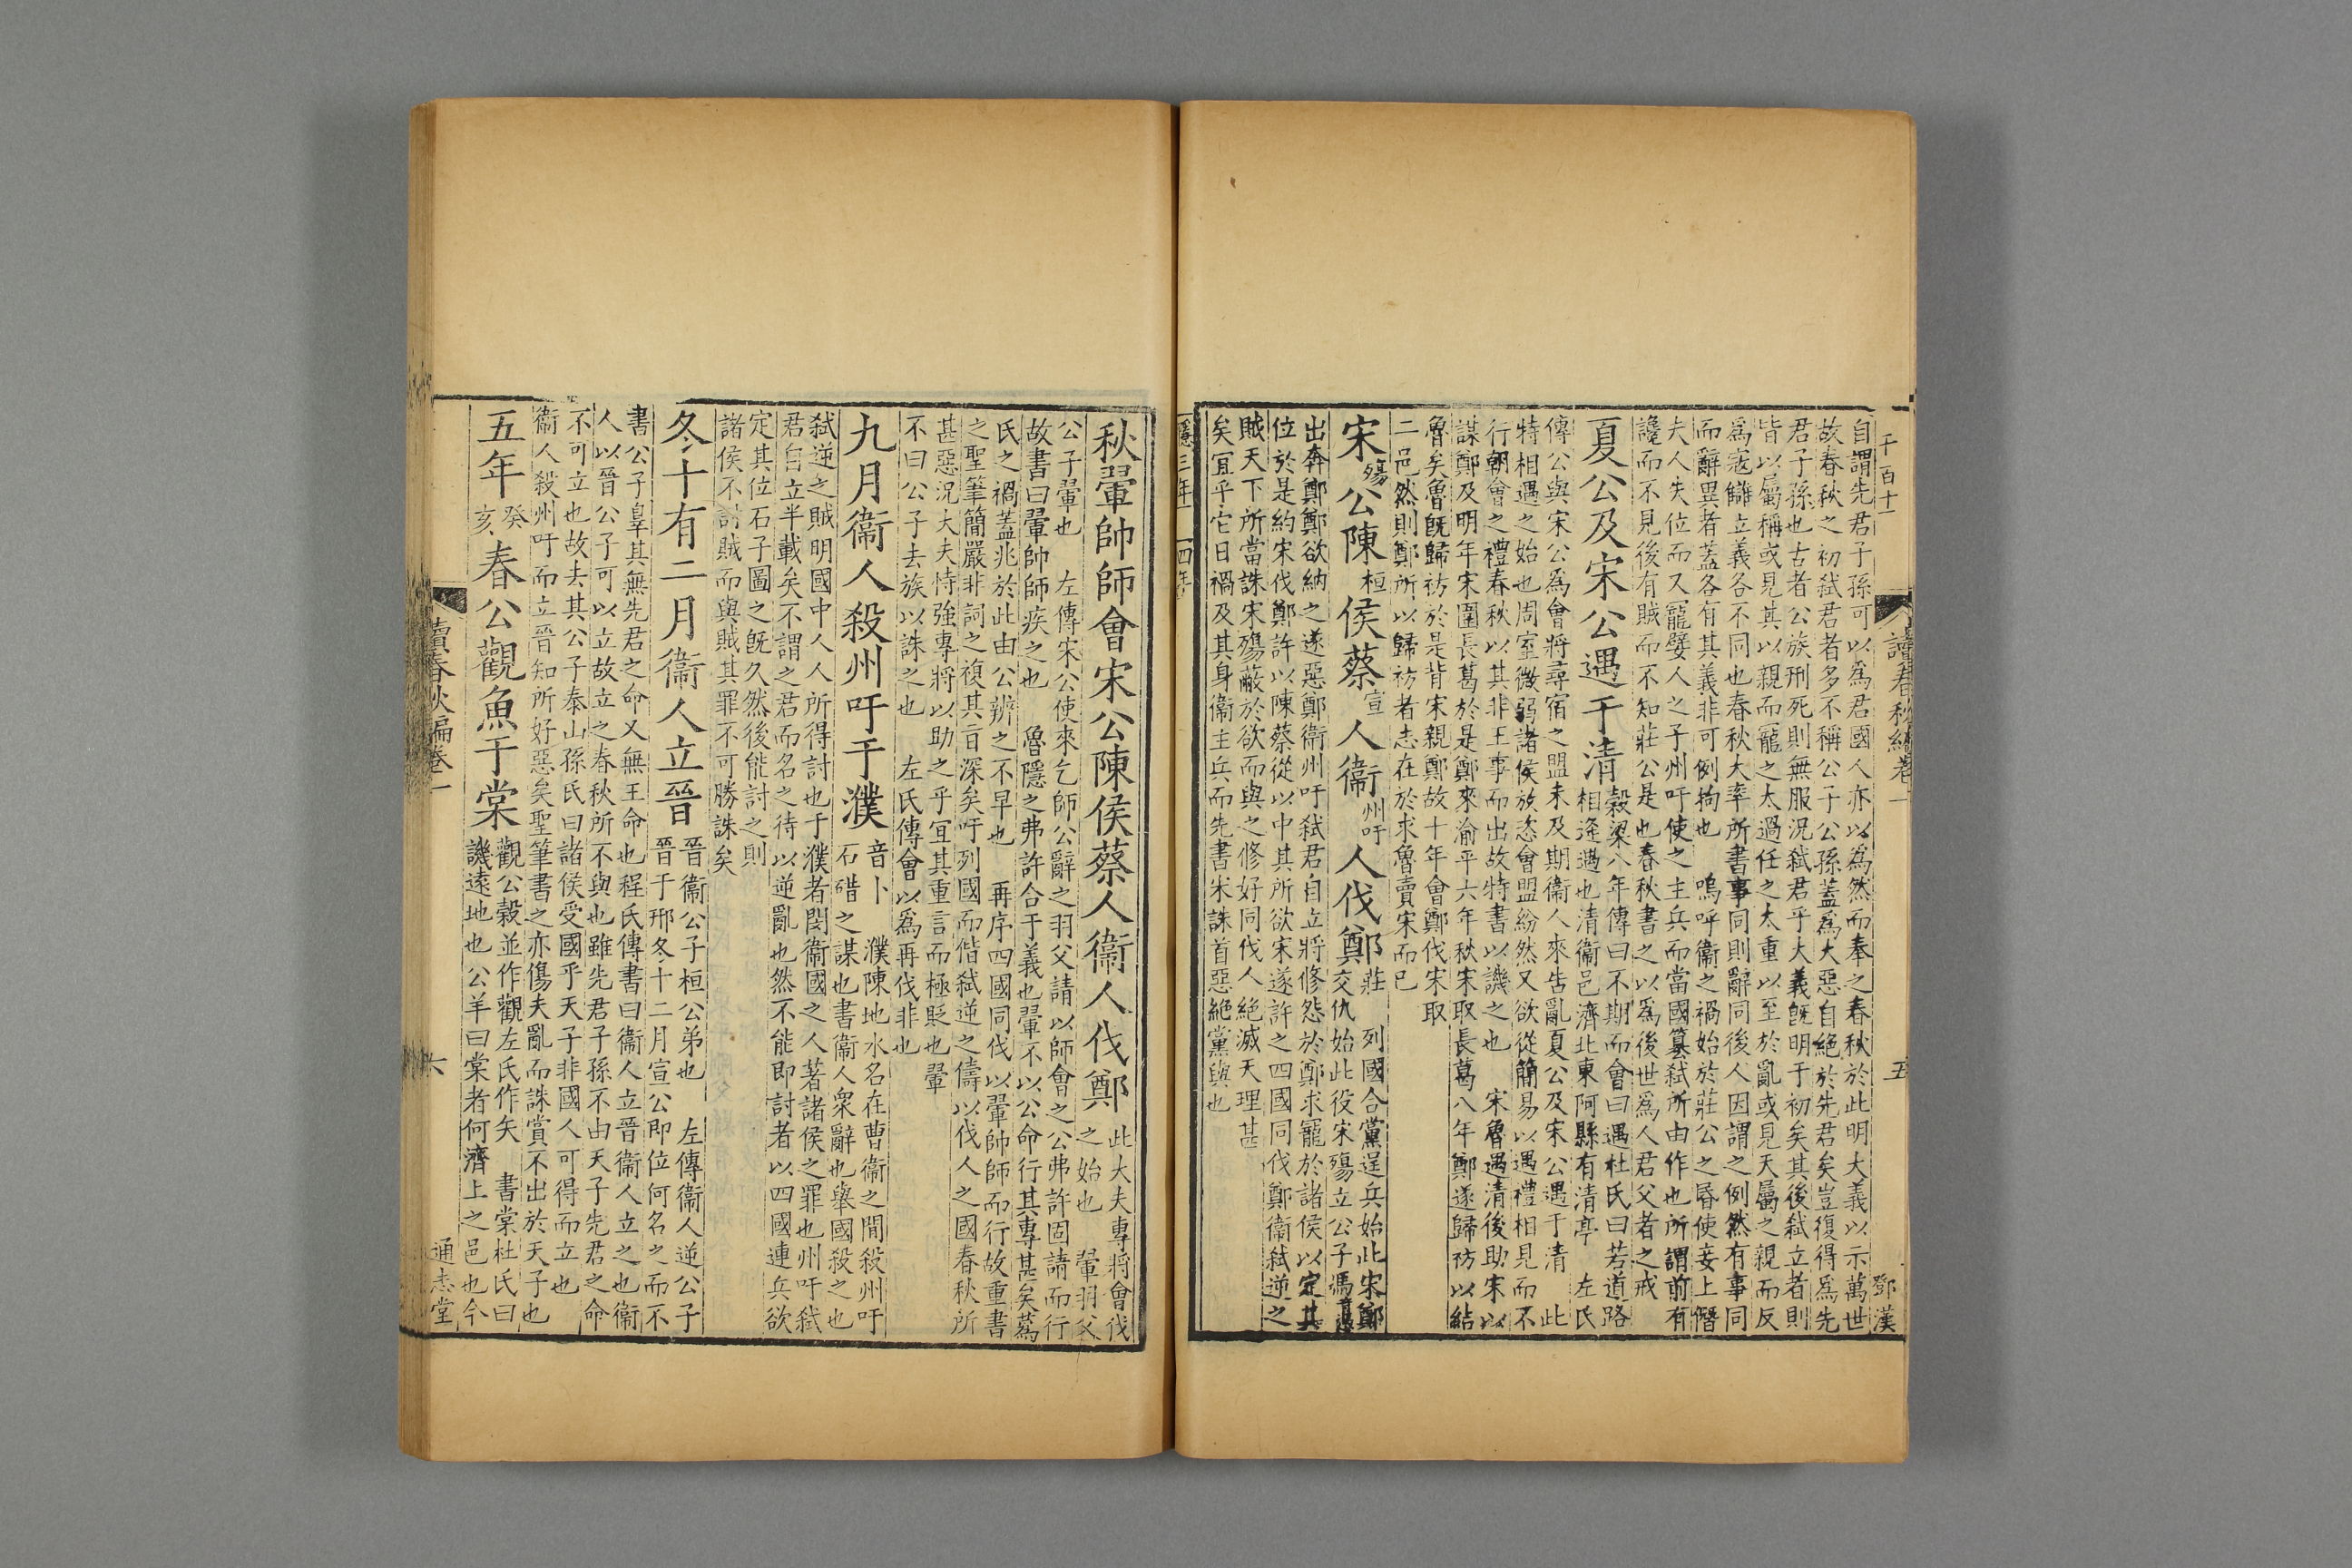 千百十一
讀春秋編卷一
五
鄧漢
自謂先君子孫可以爲君國人亦以爲然而奉之春秋於此明大義以示萬世
故春秋之初弑君者多不稱公子公孫蓋爲大惡自絕於先君矣豈復得爲先
君子孫也古者公族刑死則無服況弑君乎大義旣明于初矣其後弑立者則
皆以屬稱或見其以親而寵之太過任之太重以至於亂或見天屬之親而反
爲寇讎立義各不同也春秋大率所書事同則辭同後人因謂之例然有事同
而辭異者蓋各有其義非可例拘也　嗚呼衞之禍始於莊公之昬使妾上僭
夫人失位而又寵嬖人之子州吁使之主兵而當國簒弑所由作也所謂前有
讒而不見後有賊而不知莊公是也春秋書之以爲後世爲人君父者之戒
夏公及宋公遇于清穀梁八年傳曰不期而會曰遇杜氏曰若道路
相逄遇也清衞邑濟北東阿縣有清亭　左氏
傳公與宋公爲會將尋宿之盟未及期衞人來告亂夏公及宋公遇于清　此
特相遇之始也周室微弱諸侯放恣會盟紛然又欲從簡易以遇禮相見而不
行朝會之禮春秋以其非王事而出故特書以譏之也　宋魯遇清後助宋以
謀鄭及明年宋圍長葛於是鄭來渝平六年秋宋取長葛八年鄭遂歸祊以結
魯矣魯旣歸祊於是背宋親鄭故十年會鄭伐宋取
二邑然則鄭所以歸祊者志在於求魯賣宋而已
宋殤公陳桓侯蔡宣人衞州吁人伐鄭莊　列國合黨逞兵始此宋鄭
交仇始此役宋殤立公子馮
出奔鄭鄭欲納之遂惡鄭衞州吁弑君自立將修怨於鄭求寵於諸侯以定其
位於是約宋伐鄭許以陳蔡從以中其所欲宋遂許之四國同伐鄭衞弑逆之
賊天下所當誅宋殤蔽於欲而與之修好同伐人絕滅天理甚
矣宜乎它日禍及其身衞主兵而先書宋誅首惡絕黨與也
隱三年　四年
秋翬帥師會宋公陳侯蔡人衞人伐鄭此大夫專將會伐
之始也　翬羽父
公子翬也　左傳宋公使來乞師公辭之羽父請以師會之公弗許固請而行
故書曰翬帥師疾之也　魯隱之弗許合于義也翬不以公命行其專甚矣蔿
氏之禍蓋兆於此由公辨之不早也　再序四國同伐以翬帥師而行故重書
之聖筆簡嚴非詞之複其旨深矣吁列國而偕弑逆之儔以伐人之國春秋所
甚惡況大夫恃強專將以助之乎宜其重言而極貶也翬
不曰公子去族以誅之也　左氏傳會以爲再伐非也
九月衞人殺州吁于濮音卜　濮陳地水名在曹衞之間殺州吁
石碏之謀也書衞人衆辭也舉國殺之也
弑逆之賊明國中人人所得討也于濮者閔衞國之人著諸侯之罪也州吁弑
君自立半載矣不謂之君而名之待以逆亂也然不能即討者以四國連兵欲
定其位石子圖之旣久然後能討之則
諸侯不討賊而與賊其罪不可勝誅矣
冬十有二月衞人立晉晉衞公子桓公弟也　左傳衞人逆公子
晉于邢冬十二月宣公即位何名之而不
書公子辠其無先君之命又無王命也程氏傳書曰衞人立晉衞人立之也衞
人以晉公子可以立故立之春秋所不與也雖先君子孫不由天子先君之命
不可立也故去其公子泰山孫氏曰諸侯受國乎天子非國人可得而立也
衞人殺州吁而立晉知所好惡矣聖筆書之亦傷夫亂而誅賞不出於天子也
五年癸亥春公觀魚于棠觀公穀並作觀左氏作矢　書棠杜氏曰
譏遠地也公羊曰棠者何濟上之邑也今
讀春秋編卷一
六
通志堂